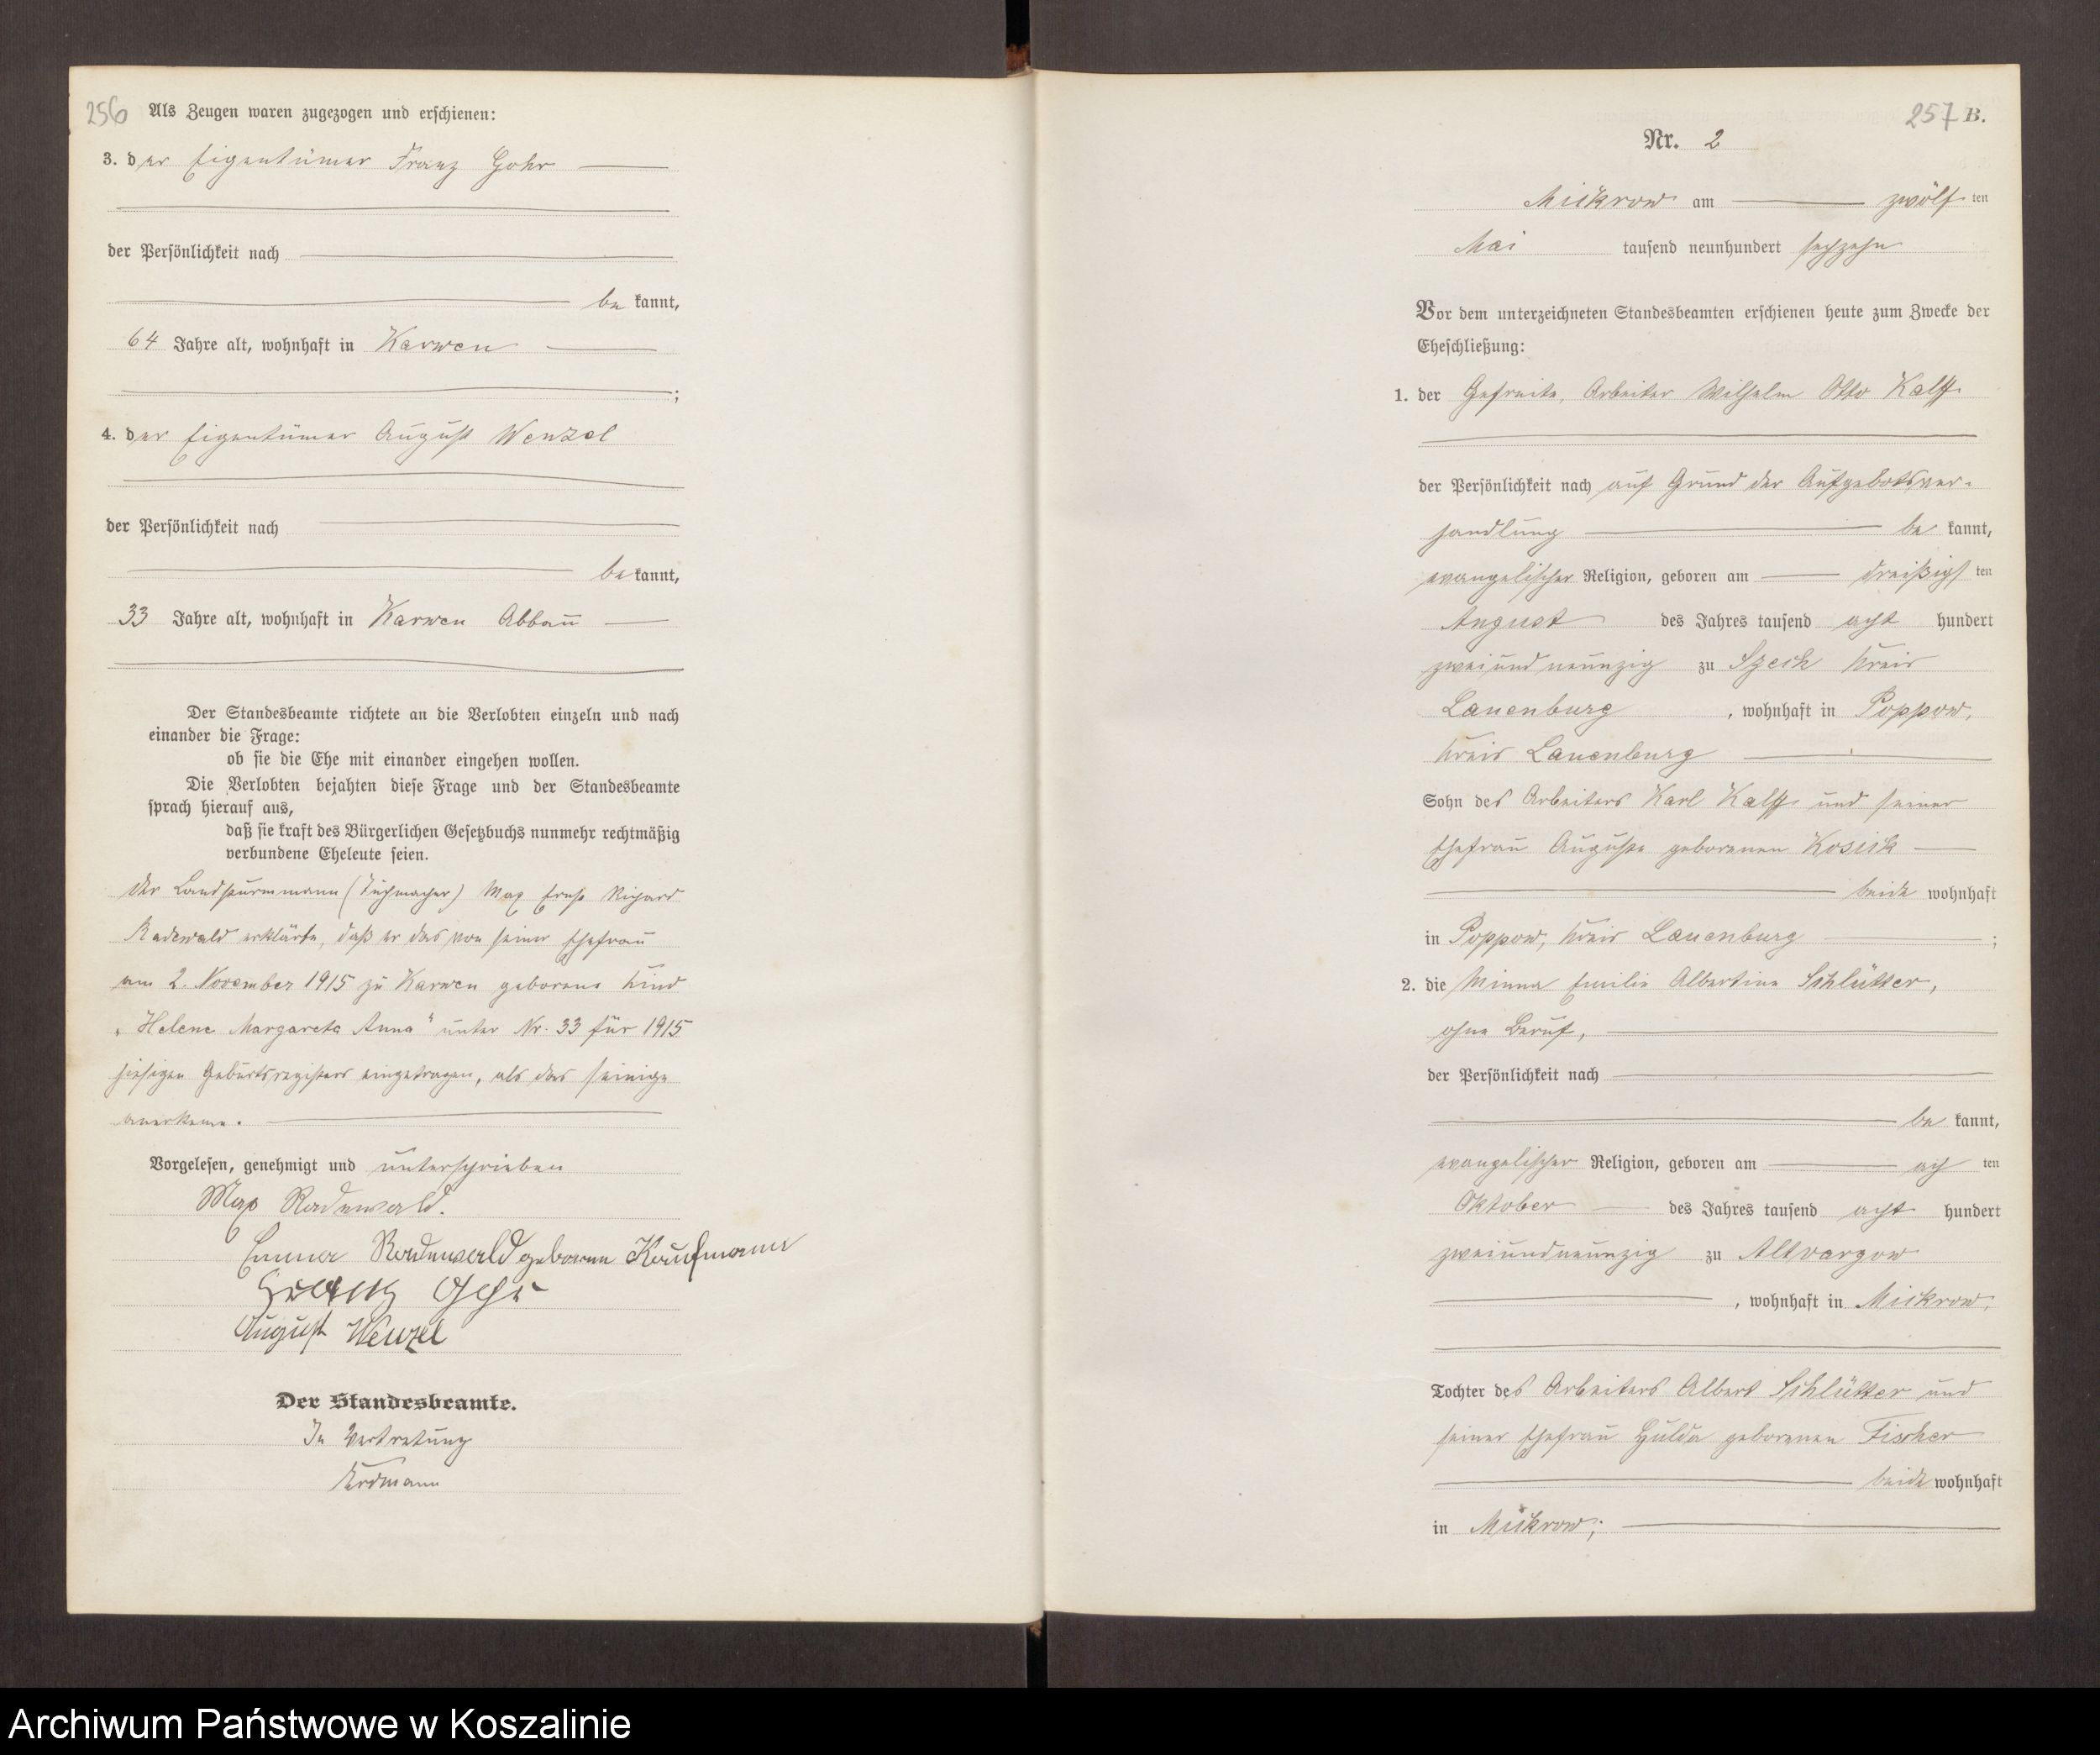 256 Als Zeugen waren zugezogen und erschienen:
3. der Eigentümer Franz Gohr
der Persönlichkeit nach
bekannt,
64 Jahre alt, wohnhaft in Karwen
;
4. der Eigentümer August Wenzel
der Persönlichkeit nach
bekannt,
33 Jahre alt, wohnhaft in Karwen Abbau
Der Standesbeamte richtete an die Verlobten einzeln und nach
einander die Frage:
ob sie die Ehe mit einander eingehen wollen.
Die Verlobten bejahten diese Frage und der Standesbeamte
sprach hierauf aus,
daß sie kraft des Bürgerlichen Gesetzbuchs nunmehr rechtmäßig
verbundene Eheleute seien.
Der Landsturmmann (Tuchmacher) Max Ernst Richard
Radewald erklärte, daß er das von seiner Ehefrau
am 2. November 1915 zu Karwen geborene Kind
„Helene Margareta Anna" unter Nr. 33 für 1915
hiesigen Geburtsregisters eingetragen, als das seinige
anerkenne.
Vorgelesen, genehmigt und unterschrieben
Max Radewald.
Emma Radewald geborene Kaufmann
Franz Gohr
August Wenzel
Der Standesbeamte.
In Vertretung
Erdmann
257 B.
Nr. 2
Mickrow am zwölften
Mai tausend neunhundert sechzehn
Vor dem unterzeichneten Standesbeamten erschienen heute zum Zwecke der
Eheschließung:
1. der Gefreite, Arbeiter Wilhelm Otto Kalff
der Persönlichkeit nach auf Grund der Aufgebotsver-
handlung bekannt,
evangelischer Religion, geboren am dreißigsten
August des Jahres tausend acht hundert
zweiundneunzig zu Szech Kreis
Lauenburg, wohnhaft in Poppow,
Kreis Lauenburg
Sohn des Arbeiters Karl Kalff und seiner
Ehefrau Auguste geborenen Kosick
beide wohnhaft
in Poppow, Kreis Lauenburg ;
2. die Minna Emilie Albertine Schlütter,
ohne Beruf,
der Persönlichkeit nach
bekannt,
evangelischer Religion, geboren am achten
Oktober des Jahres tausend acht hundert
zweiundneunzig zu Altvargow
, wohnhaft in Mickrow,
Tochter des Arbeiters Albert Schlütter und
seiner Ehefrau Hulda geborenen Fischer
beide wohnhaft
in Mickrow;
Archiwum Państwowe w Koszalinie